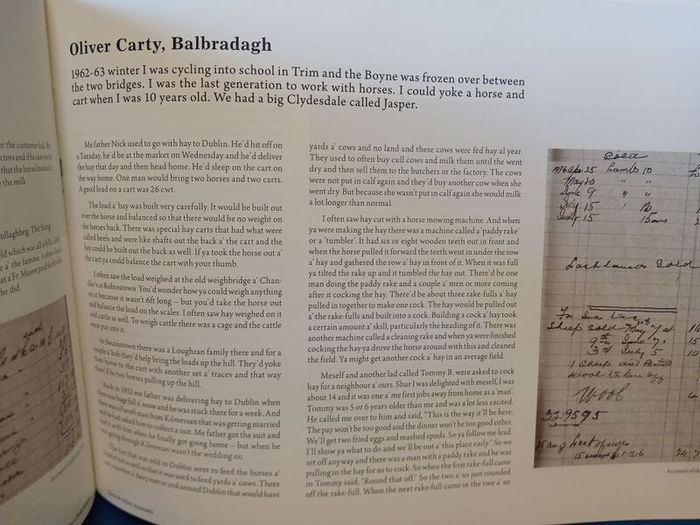 Oliver Carty, Balbradagh
1962-63 winter I was cycling into school in Trim and the Boyne was frozen over between
the two bridges. I was the last generation to work with horses. I could yoke a horse and
cart when I was 10 years old. We had a big Clydesdale called Jasper.
Me father Nick used to go with hay to Dublin. He'd hit off on
a Tuesday, he'd be at the market on Wednesday and he'd deliver
the hay that day and then head home. He'd sleep on the cart on
the way home. One man would bring two horses and two carts.
A good load on a cart was 26 cwt.
The load a' hay was built very carefully. It would be built out
over the horse and balanced so that there would be no weight on
the horses back. There was special hay carts that had what were
called heels and were like shafts out the back a' the cart and the
hay could be built out the back as well. If ya took the horse out a'
the cart ya could balance the cart with your thumb.
I often saw the load weighed at the old weighbridge a' Chan-
dler's in Robinstown. You'd wonder how ya could weigh anything
on it because it wasn't 6ft long – but you'd take the horse out
and balance the load on the scales. I often saw hay weighed on it
and cattle as well. To weigh cattle there was a cage and the cattle
were put into it.
At Swainstown there was a Loughran family there and for a
couple a' bob they'd help bring the loads up the hill. They'd yoke
their horse to the cart with another set a' traces and that way
there'd be two horses pulling up the hill.
Back in 1932 me father was delivering hay to Dublin when
there was huge fall a' snow and he was stuck there for a week. And
there was a Farrell man from Kilmessan that was getting married
and he had asked him to collect a suit. Me father got the suit and
had it with him when he finally got going home – but when he
was going through Kilmessan wasn't the wedding on.
The hay that was sold in Dublin went to feed the horses a'
Dublin as well as that it was used to feed yards a' cows. There
was many a dairy yard in and around Dublin that would have
yards a' cows and no land and these cows were fed hay al year.
They used to often buy cull cows and milk them until the went
dry and then sell them to the butchers or the factory. The cows
were not put in calf again and they'd buy another cow when she
went dry. But because she wasn't put in calf again she would milk
a lot longer than normal.
I often saw hay cut with a horse mowing machine. And when
ya were making the hay there was a machine called a 'paddy rake'
or a 'tumbler'. It had six or eight wooden teeth out in front and
when the horse pulled it forward the teeth went in under the row
a' hay and gathered the row a' hay in front of it. When it was full
ya tilted the rake up and it tumbled the hay out. There'd be one
man doing the paddy rake and a couple a' men or more coming
after it cocking the hay. There'd be about three rake-fulls a' hay
pulled in together to make one cock. The hay would be pulled out
a' the rake-fulls and built into a cock. Building a cock a' hay took
a certain amount a' skill, particularly the heading of it. There was
another machine called a cleaning rake and when ya were finished
cocking the hay ya drove the horse around with this and cleaned
the field. Ya might get another cock a' hay in an average field.
Meself and another lad called Tommy B. were asked to cock
hay for a neighbour a' ours. Shur I was delighted with meself, I was
about 14 and it was one a' me first jobs away from home as a' man.
Tommy was 5 or 6 years older than me and was a lot less excited.
He called me over to him and said, "This is the way it'll be here.
The pay won't be too good and the dinner won't be too good either.
We'll get two fried eggs and mashed spuds. So ya follow me lead.
I'll show ya what to do and we'll be out a' this place early." So we
set off anyway and there was a man with a paddy rake and he was
pulling in the hay for us to cock. So when the first rake-full came
in Tommy said, "Round that off." So the two a' us just rounded
off the rake-full. When the next rake-full came in the two a' us
Sold
Lamb 10
Wool